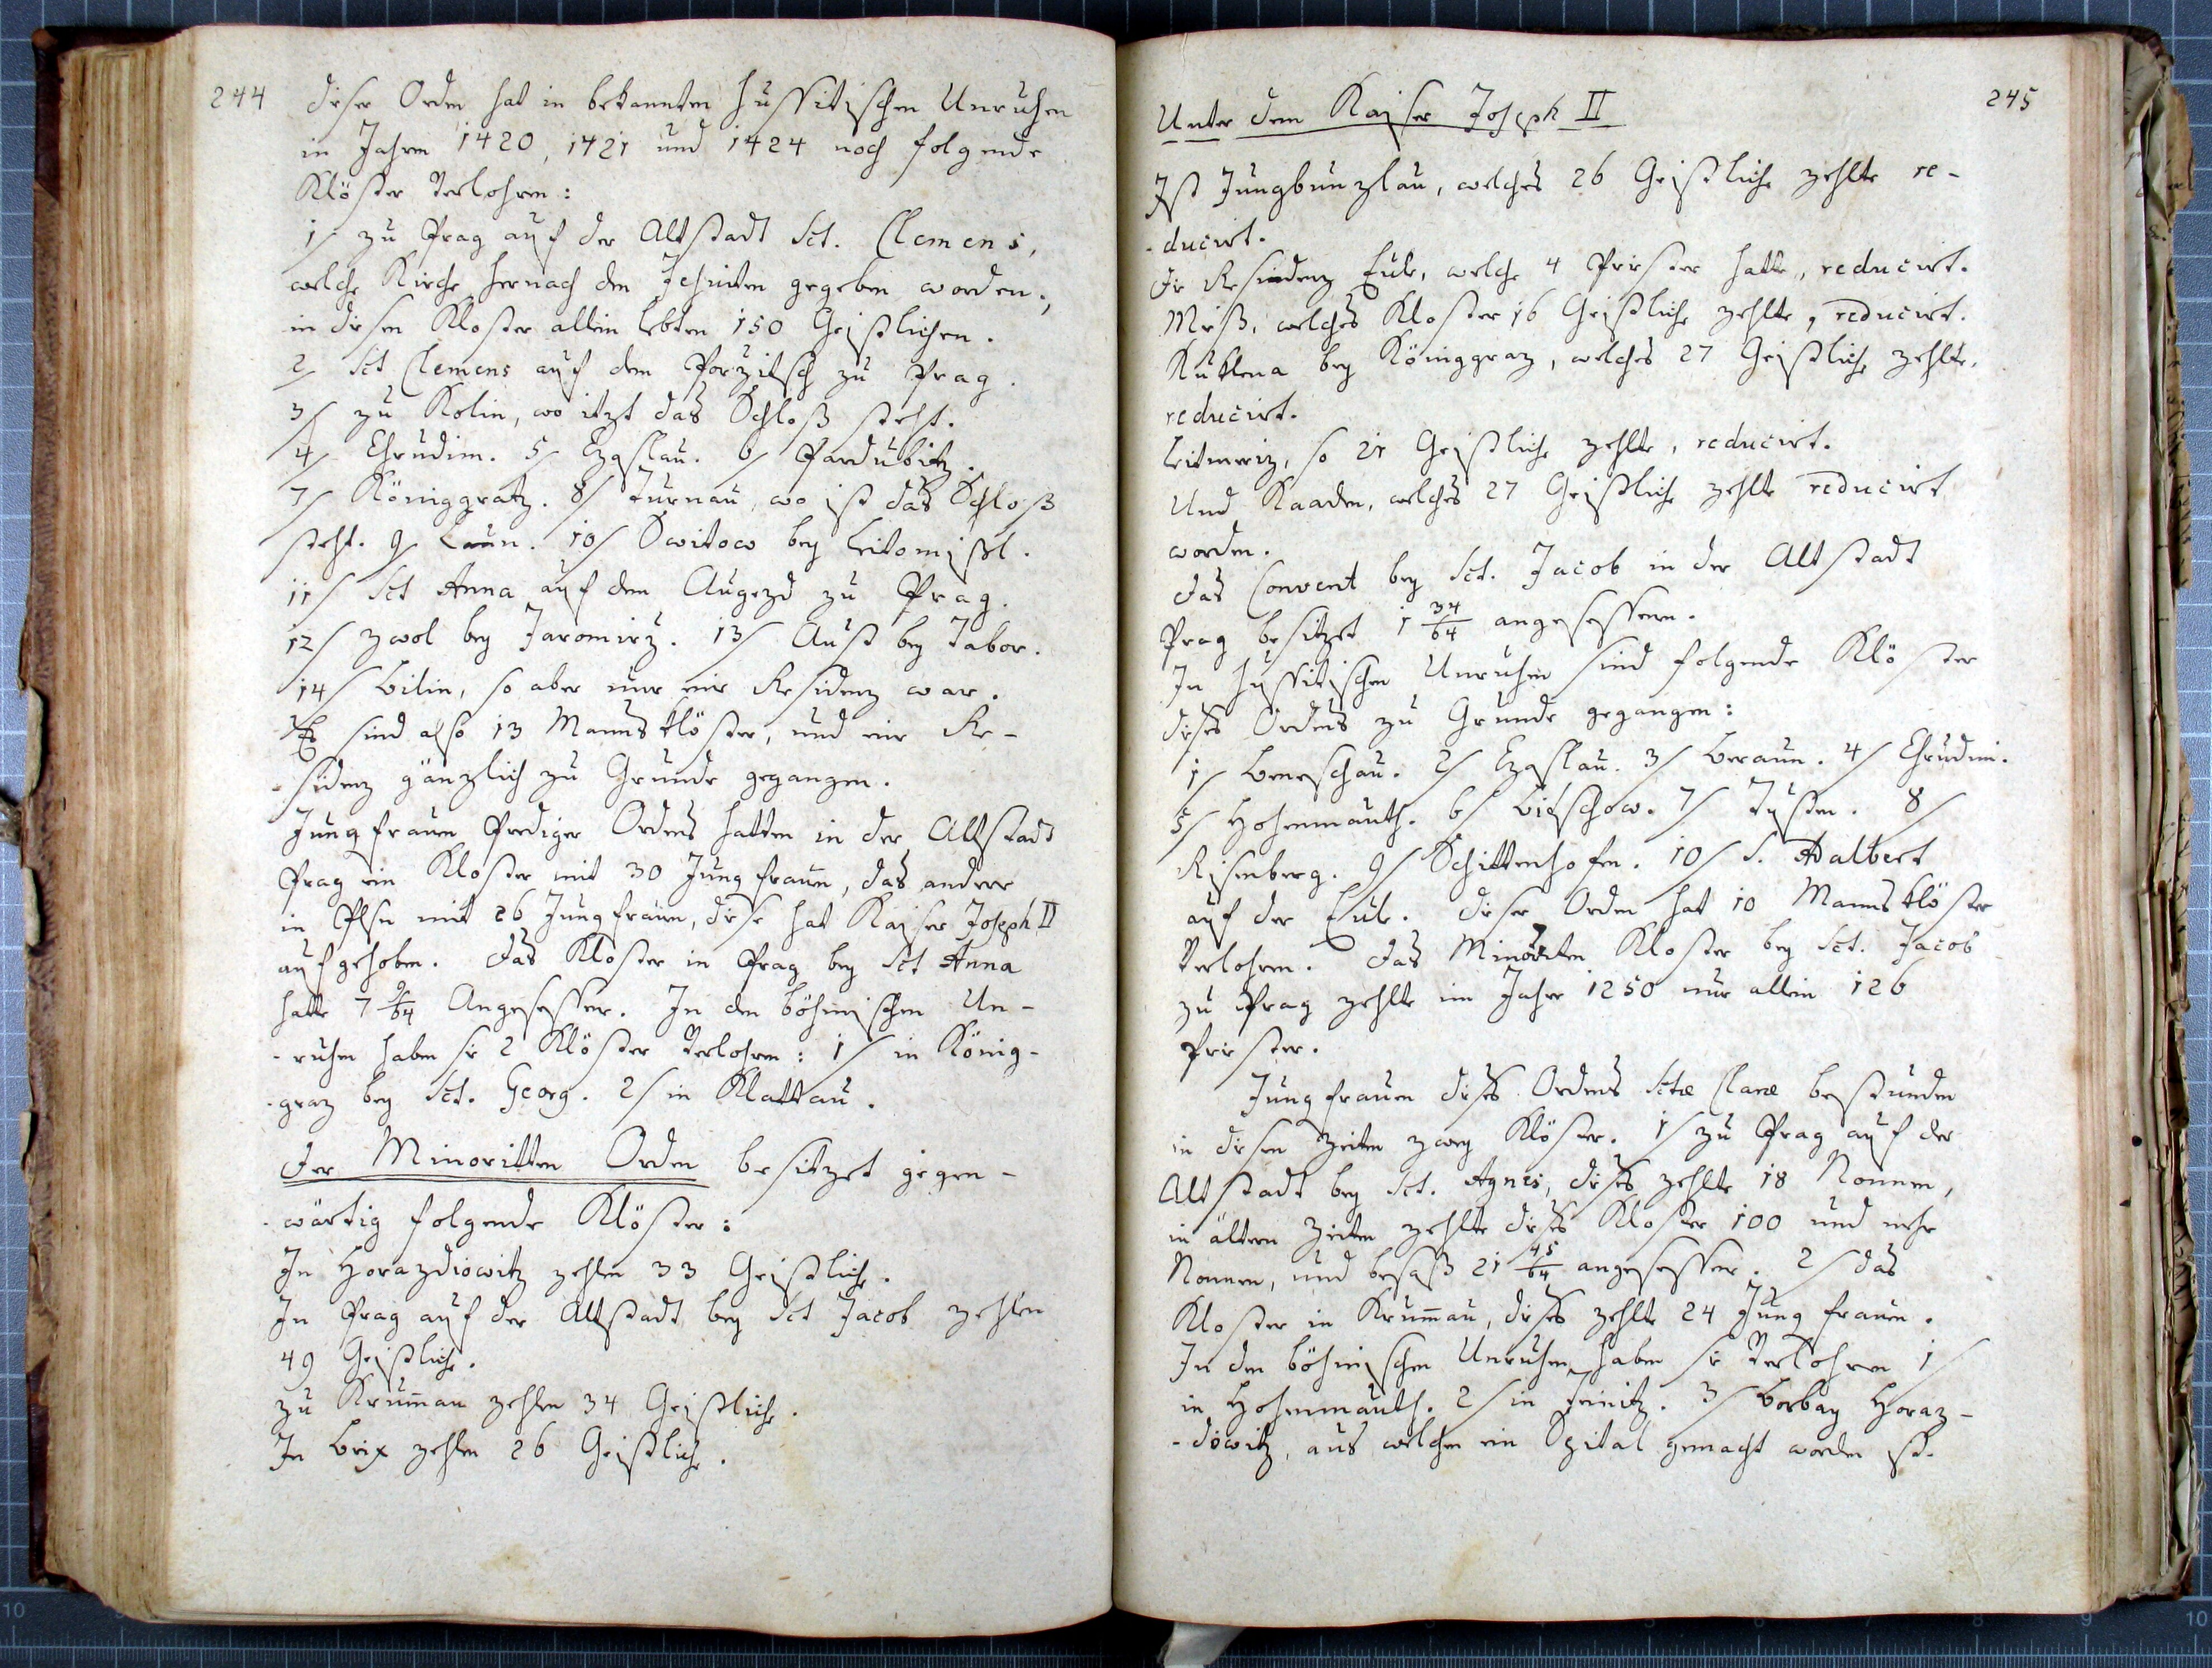 244
dieser Orden hat in bekannten Hussitischen Unruhen
in Jahren 1420, 1421 und 1424 noch folgende
Klöster verlohren:
1/ zu Prag auf der Altstadt Sct. Clemens,
welche Kirche hernach den Jesuiten gegeben worden;
in diesen Kloster allein lebten 150 Geistlichen.
2/ Sct Clemens auf dem Porzitsch zu Prag.
3/ zu Kolin, wo itzt das Schloß steht.
4/ Chrudim. 5/ Czaslau. 6/ Pardubitz.
7/ Königgratz. 8/ Turnau, wo ist das Schloß
steht. 9/ Laun. 10/ Switow bey Leitomischl.
11/ Sct Anna auf dem Augezd zu Prag.
12/ Zwol bey Jaromirz. 13/ Aust bey Tabor.
14/ Bilin, so aber nur eine Residenz war.
Es sind also 13 Mannsklöster, und eine Re-
-sidenz gänzlich zu Grunde gegangen.
Jungfrauen Prediger Ordens hatten in der Altstadt
Prag ein Kloster mit 30 Jungfrauen, das andere
in Plsn mit 26 Jungfrauen, diese hat Kaiser Joseph II
aufgehoben. Das Kloster in Prag bey Sct Anna
hatte 7 /64 Angesessene. In den böhmischen Un-
-ruhen haben sie 2 Klöster verlohren: 1/ in König-
-graz bey Sct. Georg. 2/ in Klattau.
Der Minoritten Orden besitzet gegen-
-wärtig folgende Klöster:
In Horazdiowitz zehlen 33 Geistliche.
In Prag auf der Altstadt bey Sct Jacob zehlen
49 Geistliche.
zu Krum̄au zehlen 34 Geistliche.
In Brix zehlen 26 Geistliche.
245
Unter dem Kaiser Joseph II
Ist Jungbunzlau, welches 26 Geistliche zehlte re-
-ducirt.
die Residenz Eule, welche 4 Priester hatte, reducirt.
Mieß, welches Kloster 16 Geistliche zehlte, reducirt.
Kuklena bey Königgraz, welches 27 Geistliche zehlte,
reducirt.
Leitmeriz, so 21 Geistliche zehlte, reducirt.
Und Kaaden, welches 27 Geistliche zehlte reducirt
worden.
Das Convent bey Sct. Jacob in der Altstadt
Prag besitzet 1 34/64 angesessene.
In Hussitischen Unruhen sind folgende Klöster
dieses Ordens zu Grunde gegangen:
1/ Beneschau. 2/ Czaslau. 3/ Beraun. 4/ Chrudim.
5/ Hohenmauth. 6/ Bitschow. 7/ Tusten. 8/
Risenberg. 9/ Schittenhofen. 10/ S. Adalbert
auf der Eule. Dieser Orden hat 10 Mannsklöster
verlohren. Das Minoriten Kloster bey Sct. Jacob
zu Prag zehlte im Jahre 1250 nur allein 126
Priester.
Jungfrauen dieses Ordens Sctæ Claræ bestunden
in diesen Zeiten zwey Klöster. 1/ zu Prag auf der
Altstadt bey Sct. Agnes, dieses zehlte 18 Nonnen,
in ältern Zeiten zehlte dieses Kloster 100 und mehr
Nonnen, und besaß 21 45/64 angesessene. 2/ das
Kloster in Krum̄au, dieses zehlte 24 Jungfrauen.
In den böhmischen Unruhen haben sie verlohren 1/
in Hohenmauth. 2/ in Teinitz. 3/ Borbay Horaz-
-diowitz, aus welchen ein Spital gemacht worden ist.